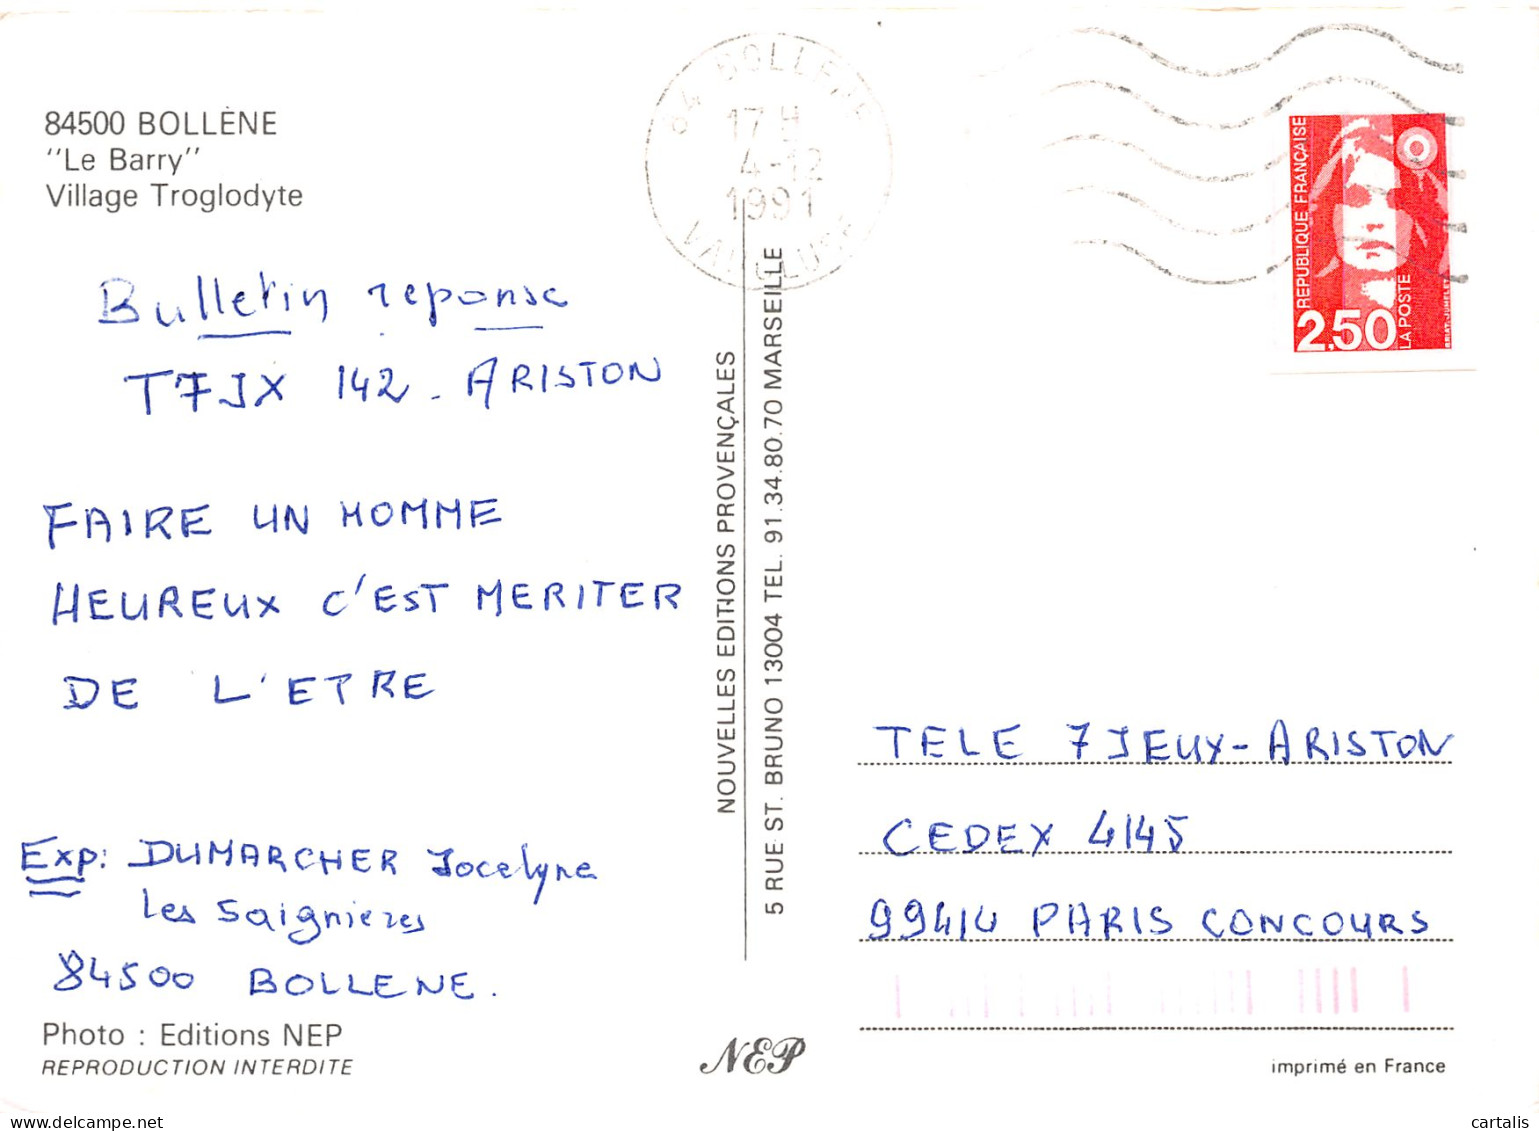 84500 BOLLÈNE
"Le Barry"
Village Troglodyte
84 BOLLENE
17 H
4-12
1991
VAUCLUSE
REPUBLIQUE FRANÇAISE
LA POSTE
2,50
Bulletin reponse
T7JX 142 - ARISTON
FAIRE UN HOMME
HEUREUX C'EST MERITER
DE L'ETRE
Exp: DUMARCHER Jocelyne
Les Saignieres
84500 BOLLENE.
Photo : Editions NEP
REPRODUCTION INTERDITE
NOUVELLES EDITIONS PROVENÇALES
5 RUE ST. BRUNO 13004 TEL. 91.34.80.70 MARSEILLE
NEP
TELE 7 JEUX - ARISTON
CEDEX 4145
99414 PARIS CONCOURS
imprimé en France
cartalis
delcampe.net